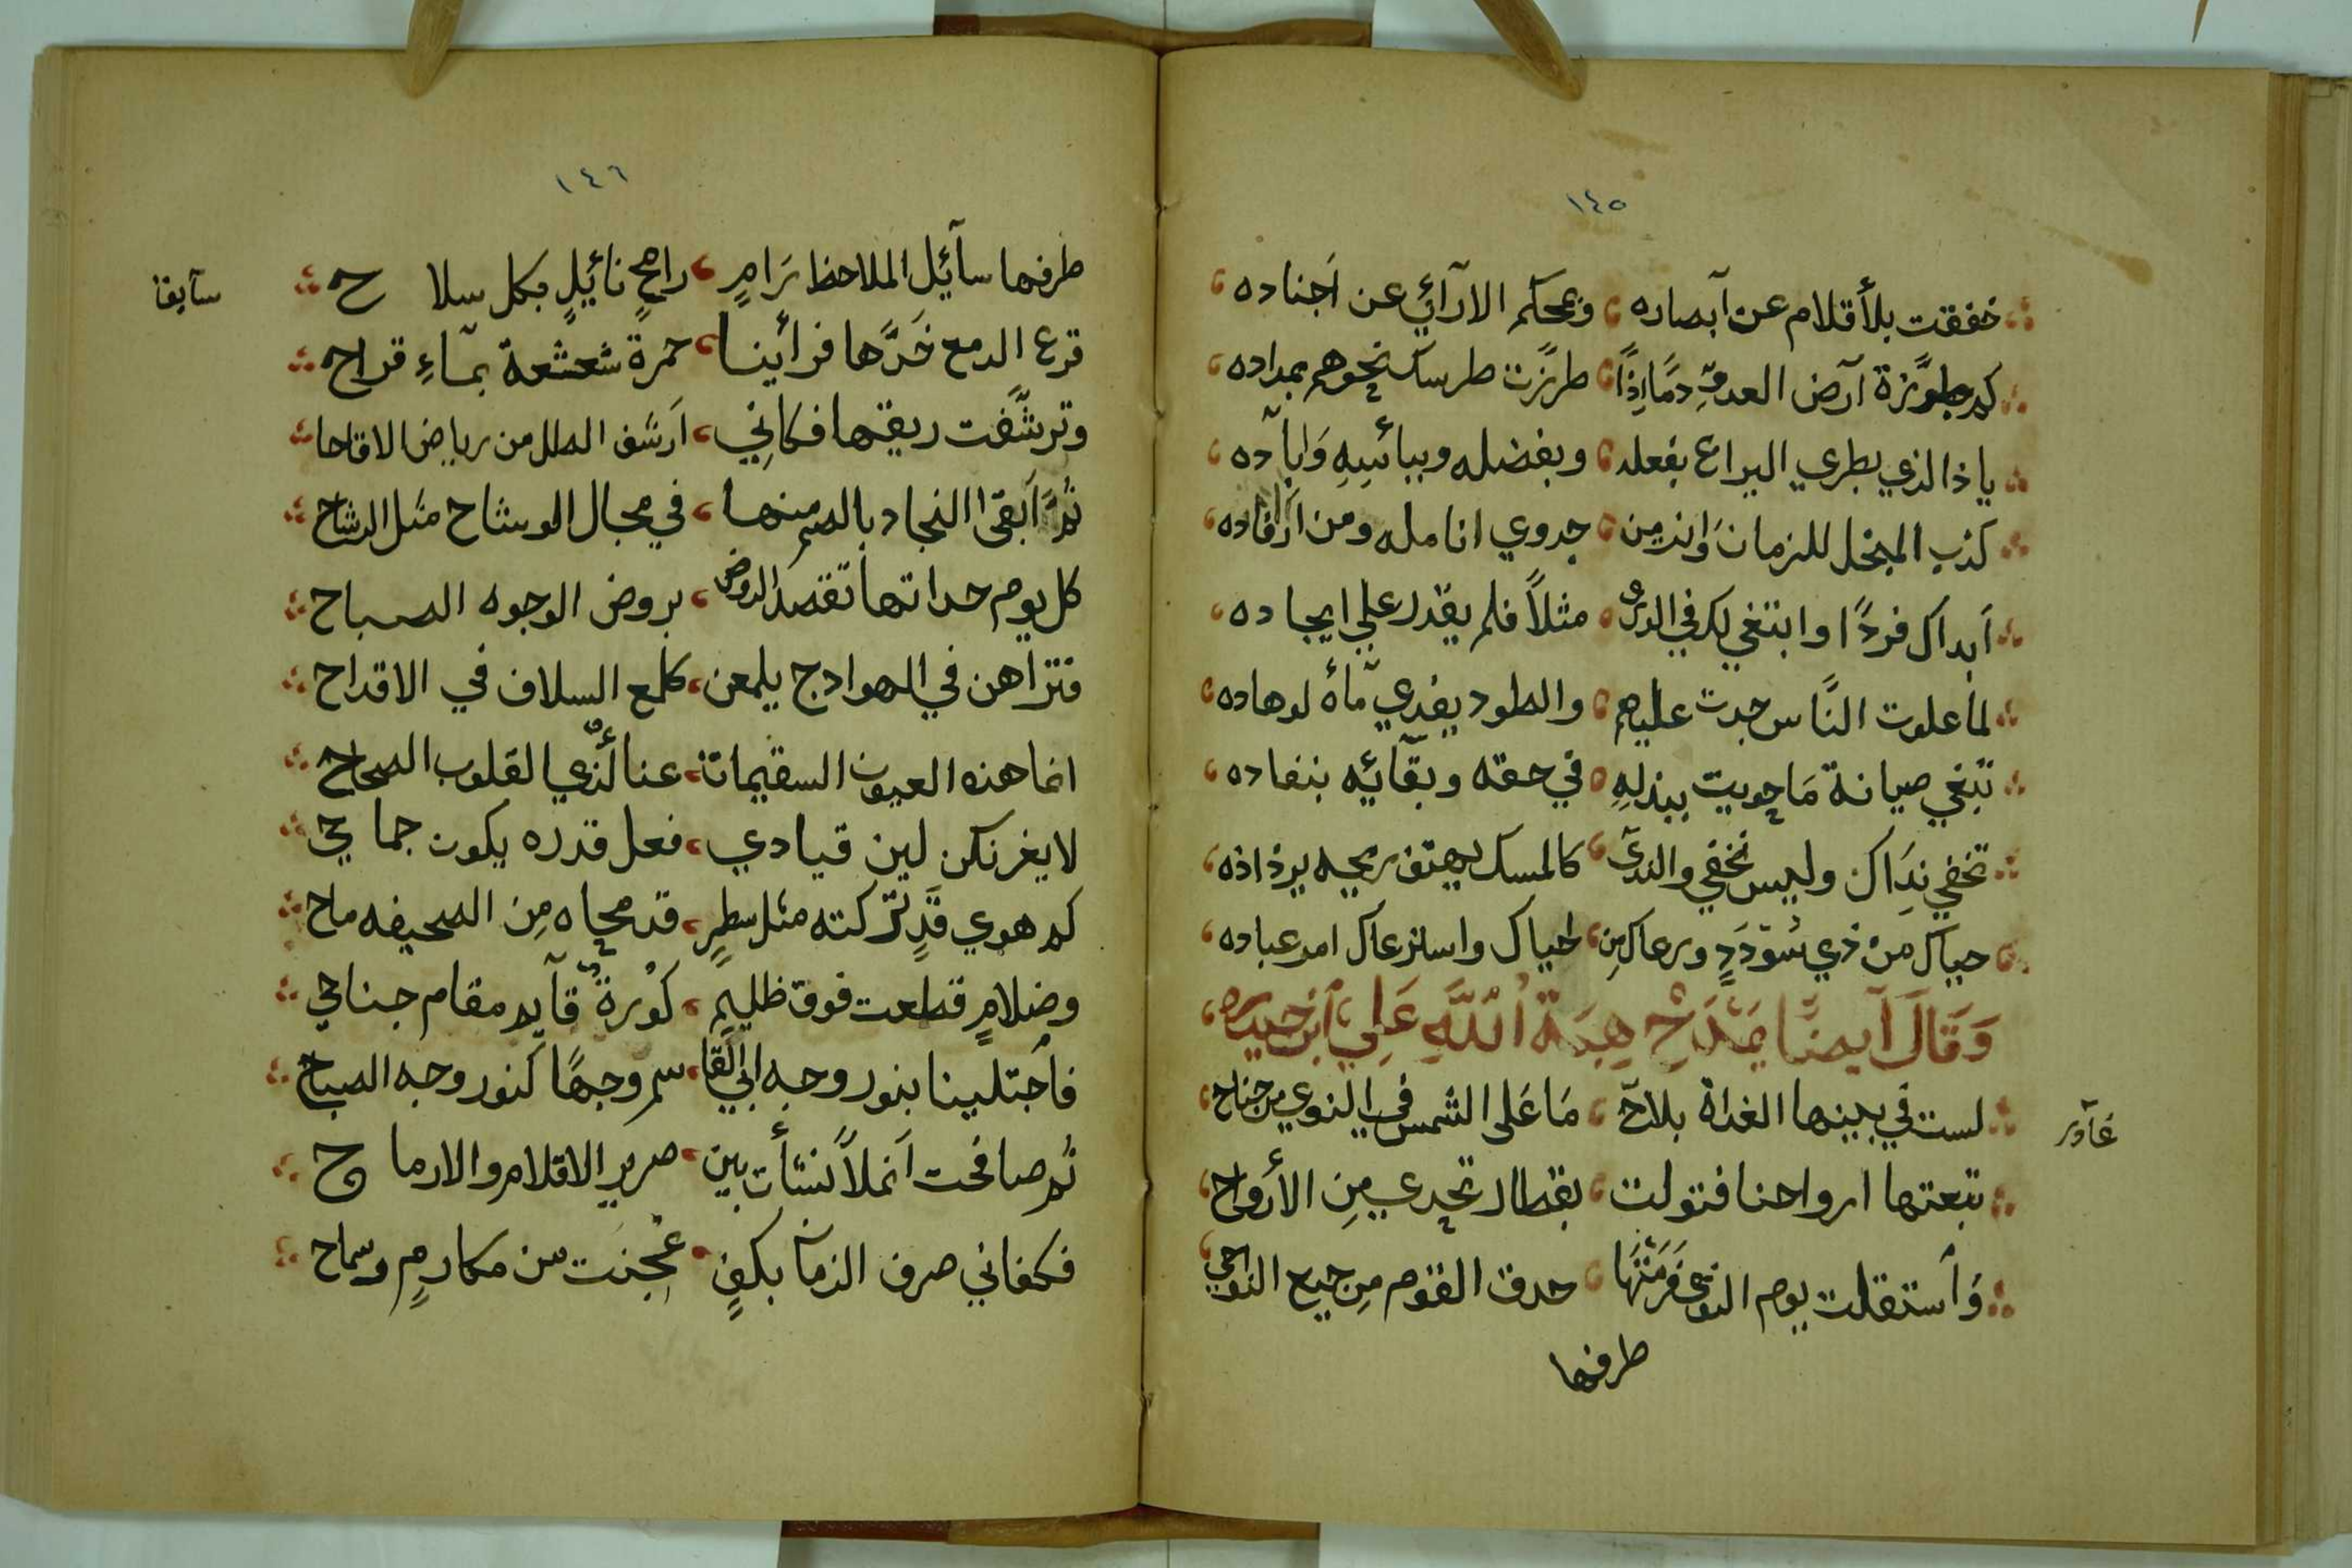 ١٤٥
خفقت بلأقلام عن آبصاره وبمحكم الارآئي عن اَجناده
كم طرَّزة آرض العدوِّ دمًا اِذًا طرَّزت طرسك نحوهم بمداده
ياذا الذي يطري اليراع بفعله وبفضله وببائسِهِ وَاِيآده
كذب المبخل للزمان وَانه من جدوي انامله ومن اَرفاده
اَبداك فردًا وابتغي لك في الورى مثلاً فلم يقدر علي ايجاده
لما علوت النَّاس جدت عليهم والطود يغدي مآءُه لوهاده
تبغي صيانة مَا حويت ببذلهِ في حقه وبقآئه بنفاده
تخفي نِدَاك وليس تخفي والندىَ كالمسك يهتف ريحه برذاذه
حياك من ذي سُؤدَدٍ ورعاك مِن احياك واسترعاك امر عباده
وَقَالَ آيضًا يَمْدَحُ هِبَةُ اللَّهِ عَلِي اَبن حيدره
عآدر
لست في بينها الغداة بلاحّ مَا عَلى الشمس في النوى من جناح
تبعتها ارواحنا فتولت بقطار تحدي مِن الأرواح
وَاَستقلت يوم النوى فَرَمَتْهَا حدق القوم مِن جميع النواحي
طرفها
١٤٦
سآيقا
طرفها سآئيل الملاحظ رَامٍ رامحٍ نائيلٍ بكل سلاح
قرع الدمع خَدَّها فرأينا خمرة شعشعة بمآءِ قراح
وترشَّفت ريقها فكاني اَرشف الطل من رياض الاقاحا
ثمَّ اَبقى النجاد بالضم منها في مجال الوشاح مثل الوشاح
كل يوم حداتها تقصد الروض بروض الوجوه الصباح
فتراهن في الهوادج يلمعن كلمع السلاف في الاقداح
انما هذه العيون السقيمات عناءٌ لذي القلوب الصحاح
لا يغرنكن لين قيادي فعل قدره يكون جماحي
كم هوي قَدٍ تَركته مثل سطرٍ قد محاه مِن الصحيفه ماح
وضلامٍ قطعت فوق ظليمٍ كُورةٌ قآيم مقام جناحي
فاَجتلينا بنور وجه ابي القا سم وجهًا كنور وجه الصباح
ثم صافحت اَنملاً نشأت بين صرير الاقلام والارماح
فكفاني صرف الزمآن بكفٍ عُجِنَت من مكارمٍ وسماح